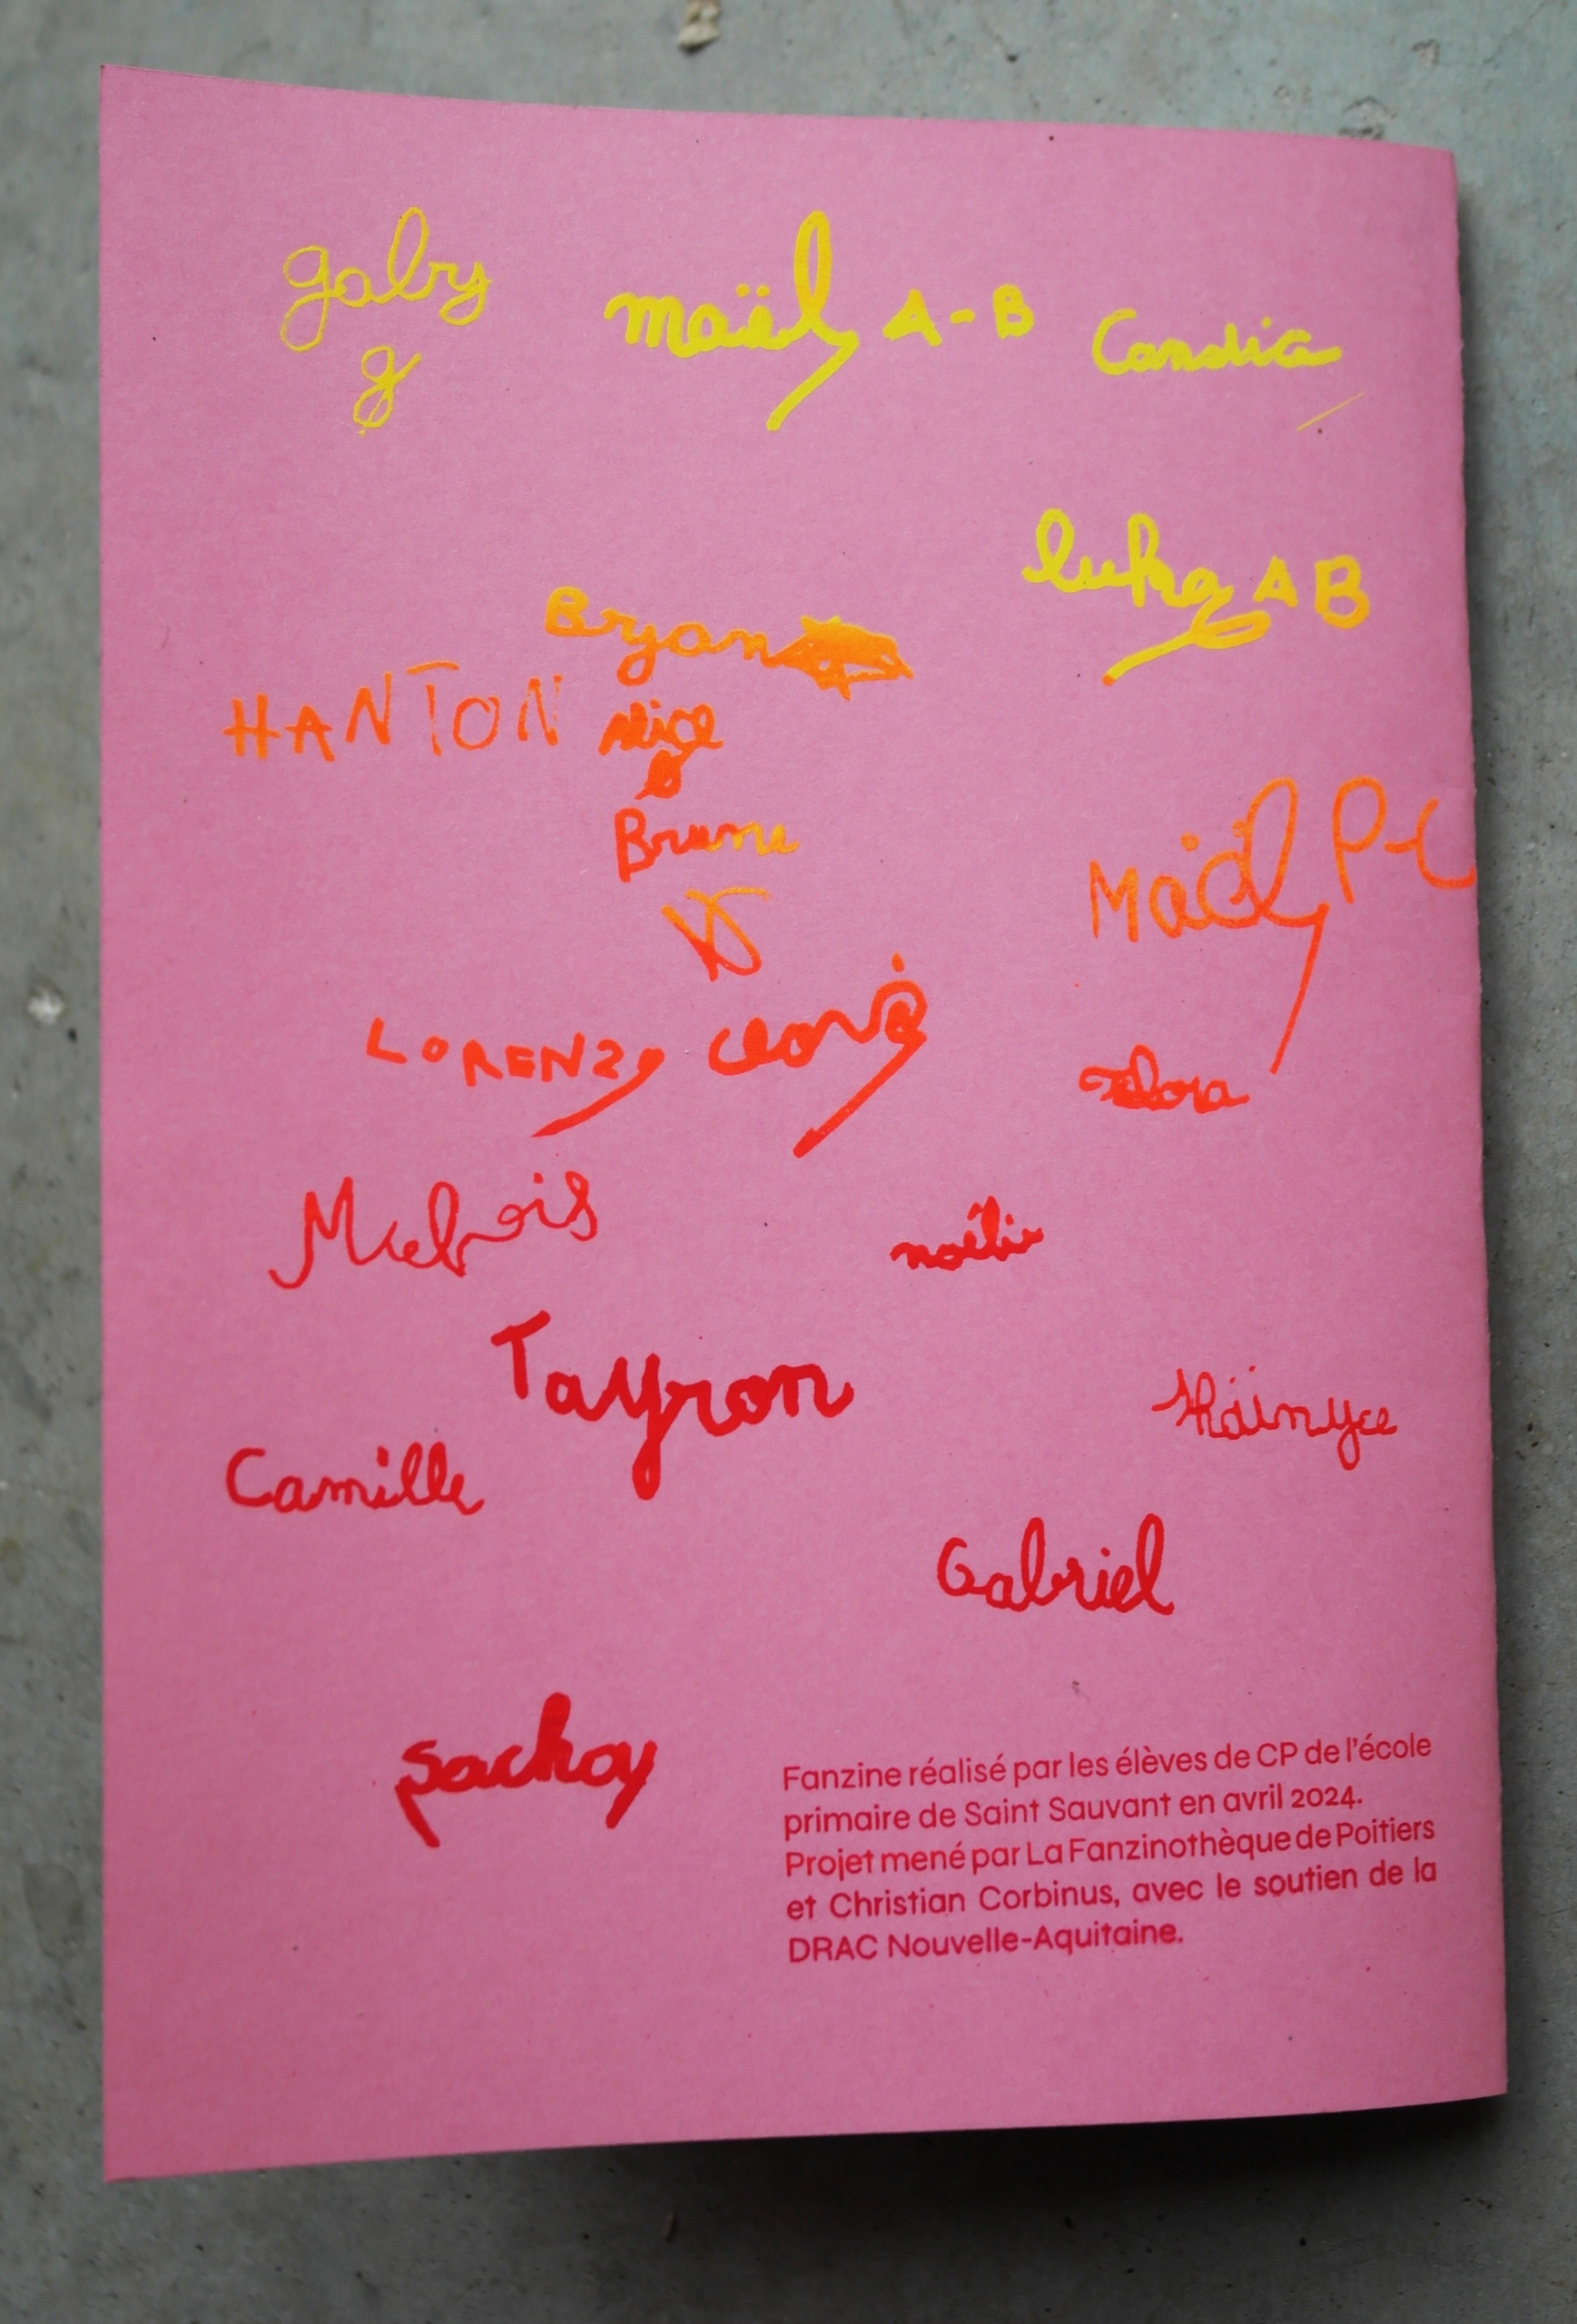 gaby
g
maël A-B
Candia
luka AB
Bryan
HANTON
alice
Brune
Maël P-C
LORENZO
Flora
noélie
Tayron
Camille
Gabriel
sacha
Fanzine réalisé par les élèves de CP de l'école
primaire de Saint Sauvant en avril 2024.
Projet mené par La Fanzinothèque de Poitiers
et Christian Corbinus, avec le soutien de la
DRAC Nouvelle-Aquitaine.